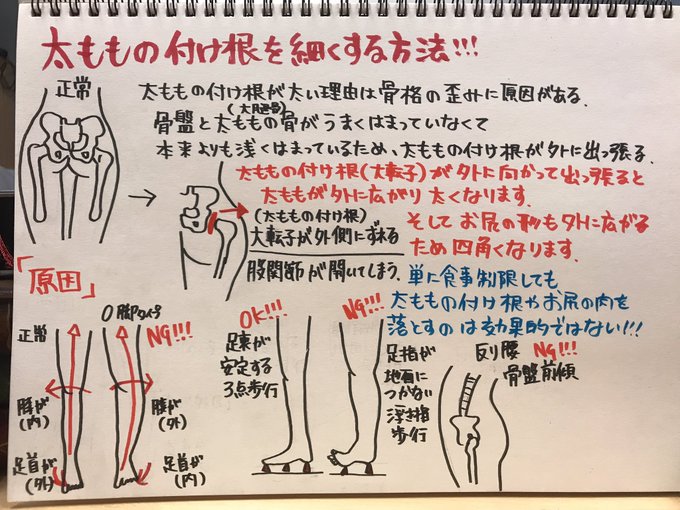 太ももの付け根を細くする方法!!!
正常
太ももの付け根が太い理由は骨格の歪みに原因がある.
(大腿骨)
骨盤と太ももの骨がうまくはまっていなくて
本来よりも浅くはまっているため、太ももの付け根が外に出っ張る.
太ももの付け根(大転子)が外に向かって出っ張ると
太ももが外に広がり太くなります.
(太ももの付け根)
大転子が外側にずれる
そしてお尻の形も外に広がる
ため四角くなります.
股関節が開いてしまう.
単に食事制限しても
太ももの付け根やお尻の肉を
落とすのは効果的ではない!!!
「原因」
正常
O脚タイプ
NG!!!
膝が
(内)
膝が
(外)
足首が
(外)
足首が
(内)
OK!!!
足裏が
安定する
3点歩行
NG!!!
足指が
地面に
つかない
浮き指
歩行
反り腰
NG!!!
骨盤前傾